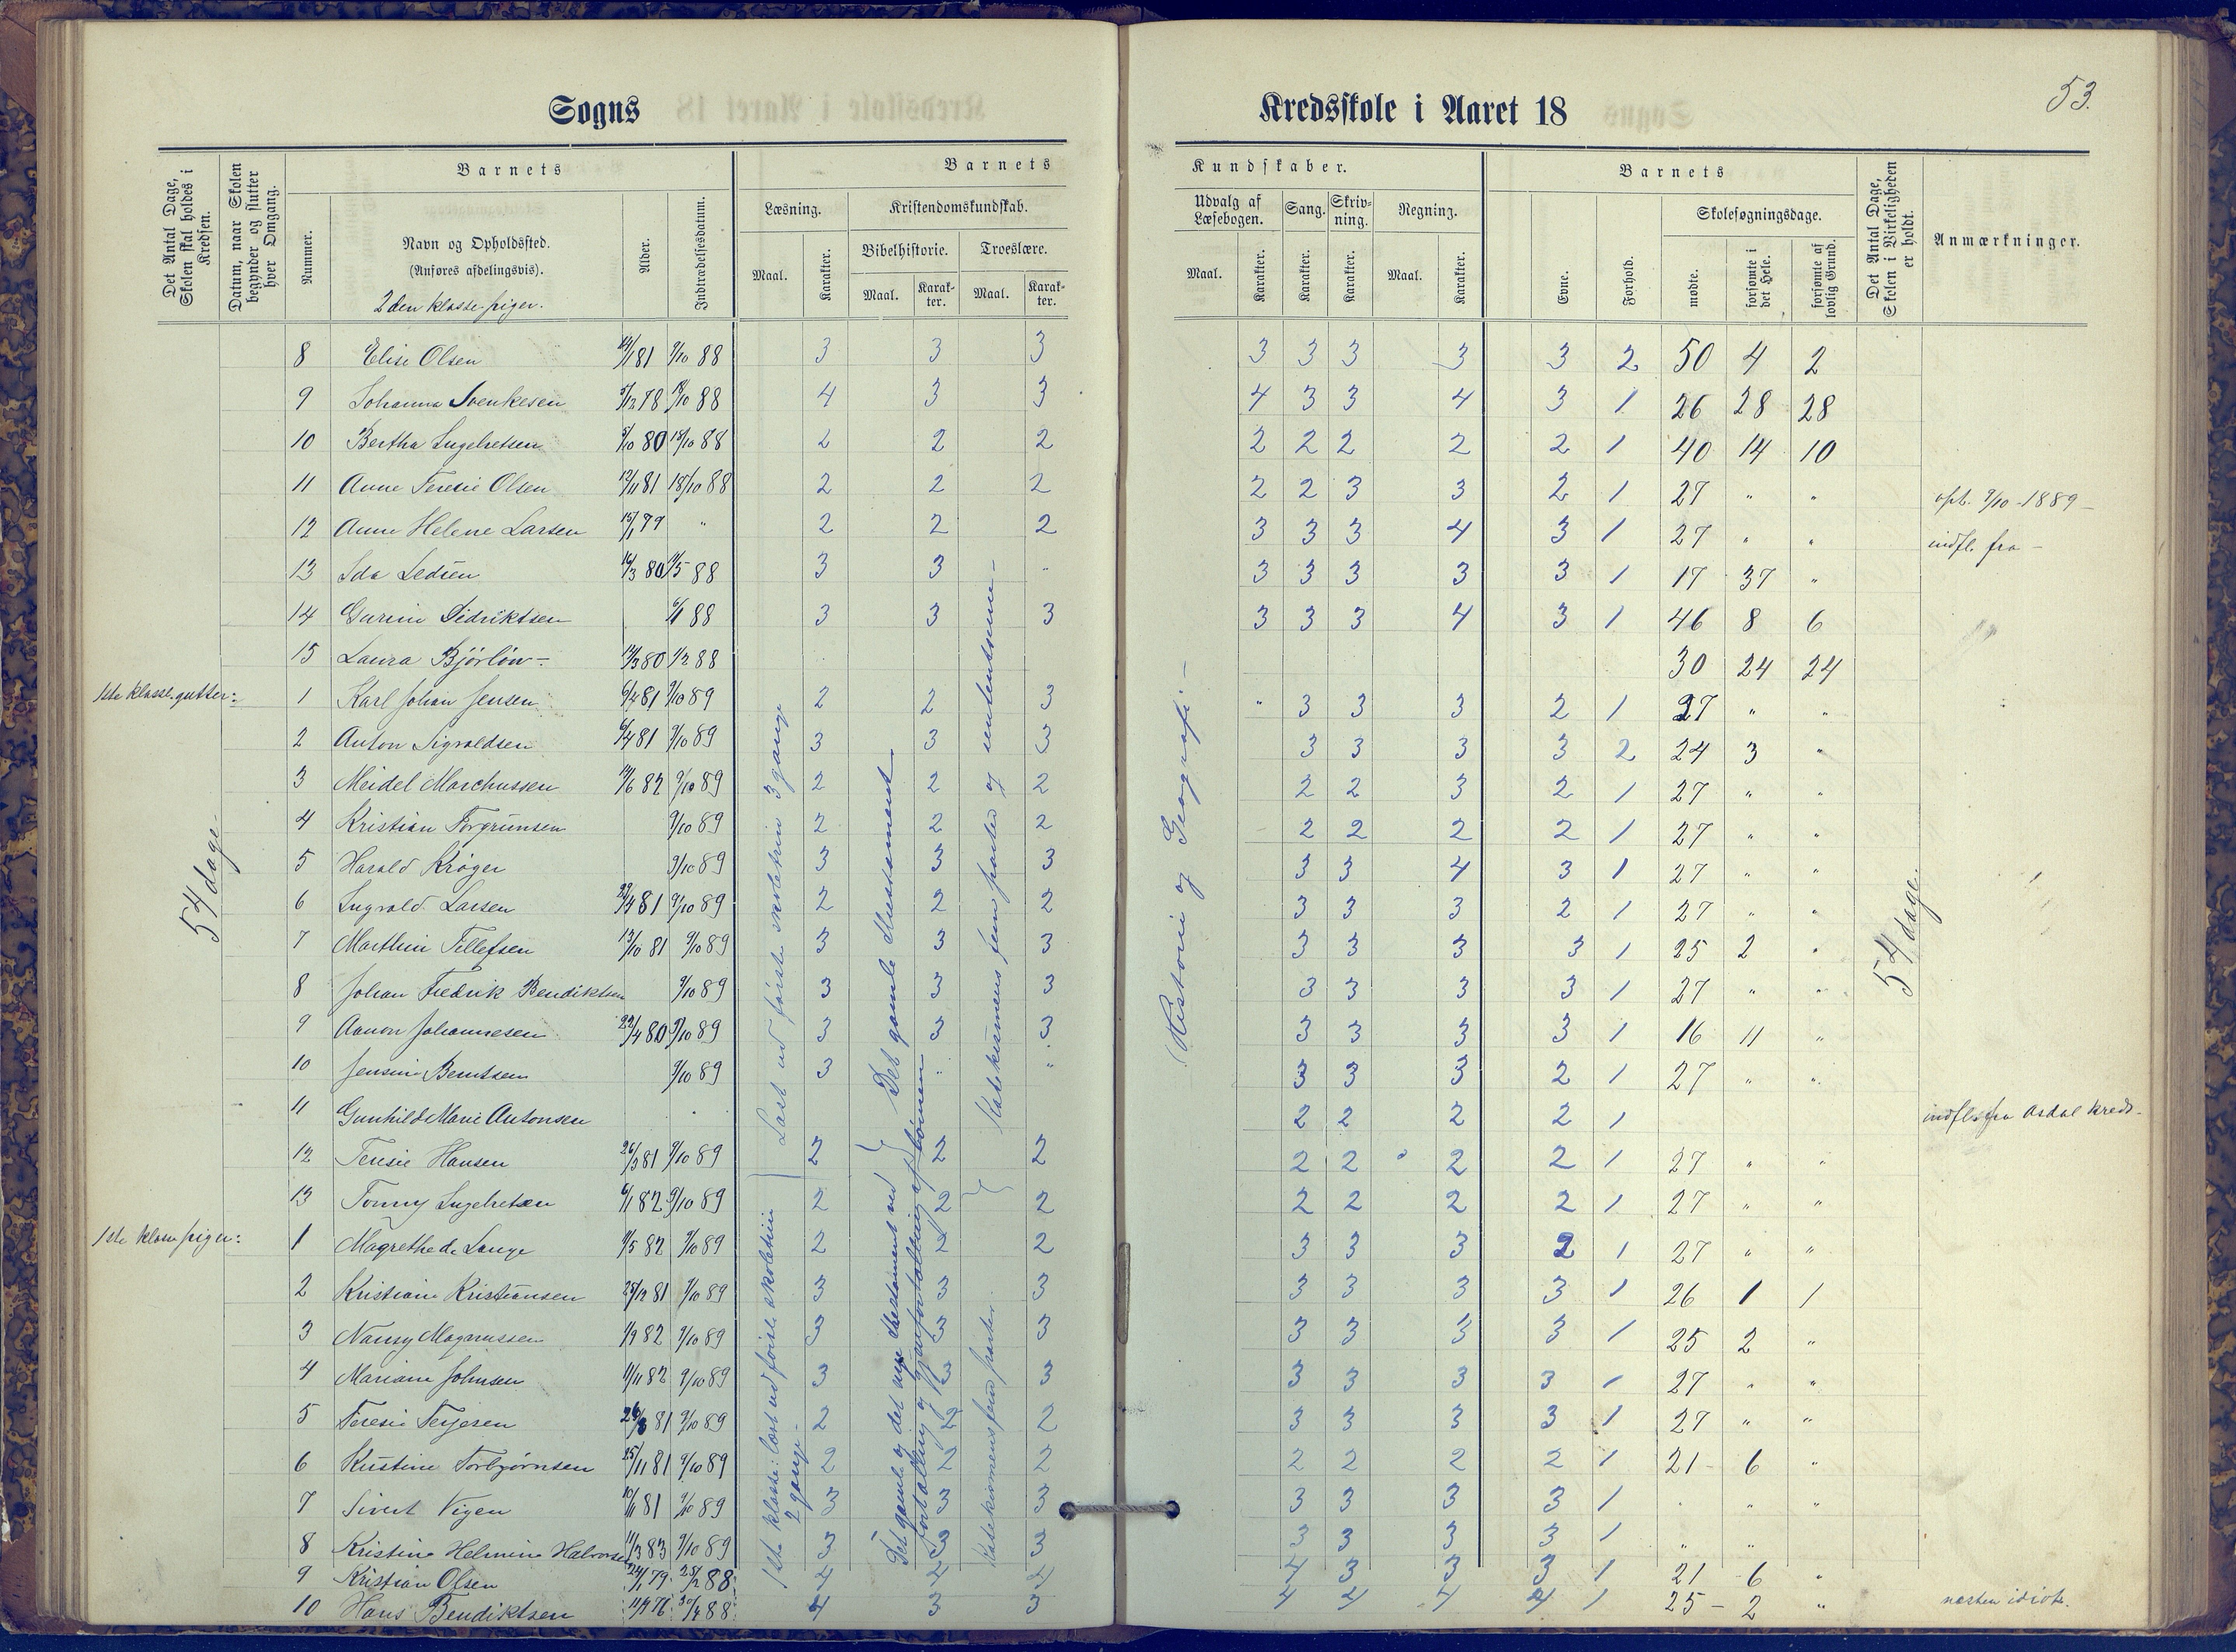 53.
Sogns Kredsskole i Aaret 18
Det Antal Dage, Skolen skal holdes i Kredsen.
Datum, naar Skolen begynder og slutter hver Omgang.
Barnets
Nummer.
Navn og Opholdssted.
(Anføres afdelingsvis).
2den klasse piger.
Alder.
Indtrædelsesdatum.
Barnets Kundskaber.
Læsning.
Maal.
Karakter.
Kristendomskundskab.
Bibelhistorie.
Maal.
Karakter.
Troeslære.
Maal.
Karakter.
Udvalg af Læsebogen.
Maal.
Karakter.
Sang.
Karakter.
Skrivning.
Karakter.
Regning.
Maal.
Karakter.
Barnets
Evne.
Forhold.
Skolesøgningsdage.
mødte.
forsømte i det Hele.
forsømte af lovlig Grund.
Det Antal Dage, Skolen i Virkeligheden er holdt.
Anmærkninger.
8 Elise Olsen 81 9/10 88 3 3 3 3 3 3 3 3 2 50 4 2
9 Johanna 78 88 4 3 3 4 3 3 4 3 1 26 28 28
10 Bertha Ingebretsen 80 15/10 88 2 2 2 2 2 2 2 2 1 40 14 10
11 Anne Teresie Olsen 81 15/10 88 2 2 2 2 2 3 3 2 1 27 " " 9/10 - 1889
12 Anne Helene Larsen 79 " 2 2 2 3 3 3 4 3 1 27 " " indfl. fra -
13 Ida Ledsen 80 88 3 3 " 3 3 3 3 3 1 17 37 "
14 Gurine Didriktsen 88 3 3 3 3 3 3 4 3 1 46 8 6
15 Laura 80 1/2 88 30 24 24
1ste klasse gutter:
1 Karl Johan Jensen 81 9/10 89 2 2 3 " 3 3 3 2 1 27 " "
2 Anton Sigvaldsen 81 9/10 89 3 3 3 3 3 3 3 2 24 3 "
3 Meidel Marchussen 82 9/10 89 2 2 2 2 2 3 2 1 27 " "
4 Kristian Torgrimsen 9/10 89 2 2 2 2 2 2 2 1 27 " "
5 Harald Krøger 9/10 89 3 3 3 3 3 4 3 1 27 " "
6 Ingvald Larsen 81 9/10 89 2 2 2 3 3 3 2 1 27 " "
7 Marthin Tellefsen 13/10 81 9/10 89 3 3 3 3 3 3 3 1 25 2 "
8 Johan Fredrik Bendiktsen 9/10 89 3 3 3 3 3 3 3 1 27 " "
9 Aanon Johannesen 22/4 80 9/10 89 3 3 3 3 3 3 3 1 16 11 "
10 Jensine Berntsen 9/10 89 3 " " 3 3 3 2 1 27 " "
11 Gunhild Marie Antonsen 2 2 2 2 1 indfl. fra Asdal kreds.
12 Teresie Hansen 26/3 81 9/10 89 2 2 2 2 2 2 2 1 27 " "
13 Tonny Ingebretsen 6/1 82 9/10 89 2 2 2 2 2 2 2 1 27 " "
1ste klasse piger:
1 Magrethe de Lange 82 9/10 89 2 2 2 3 3 3 2 1 27 " "
2 Kristiane Kristiansen 25/12 81 9/10 89 3 3 3 3 3 3 3 1 26 1 1
3 Nancy Magnussen 1/9 82 9/10 89 3 3 3 3 3 3 3 1 25 2 "
4 Mariane Johnsen 11/11 82 9/10 89 3 3 3 3 3 3 3 1 27 " "
5 Teresie Terjesen 81 9/10 89 2 2 2 3 3 3 3 1 27 " "
6 Kristine Torbjørnsen 25/11 81 9/10 89 2 2 2 2 2 2 2 1 21 6 "
7 Sivert Vigen 81 9/10 89 3 3 3 3 3 3 3 1 " "
8 Kristine Helmine Halvorsen 11/3 83 9/10 89 3 3 3 3 3 3 3 1 " "
9 Kristian Olsen 79 88 4 4 4 4 3 3 3 1 21 6 "
10 Hans Bendiktsen 88 4 3 3 4 4 4 4 1 25 - 2 " næsten idiot.
54 dage -
Læst ud første skoletrin 3 gange
1ste klasse: læst ud første skoletrin 2 gange -
Det gamle Thestament
Det gamle og det nye thestament ved fortælling og gjenfortælling af lærerinden
Katekismens fem parter og
Katekismens fem parter.
(Historie og Geografi. -
54 dage.